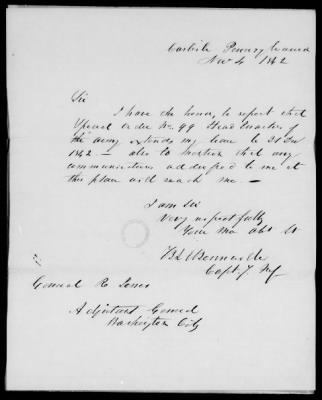 Carlisle Pennsylvania
Nov 4 1842
Sir
I have the honor, to report that
Special order No. 99 Head Quarters of
the army extends my leave to 31 Dec
1842 — also to mention that any
communications addressed to me at
this place will reach me —
I am Sir
Very respectfully
Your Mo Obt St
Capt 7. Inf
General R Jones
Adjutant General
Washington City